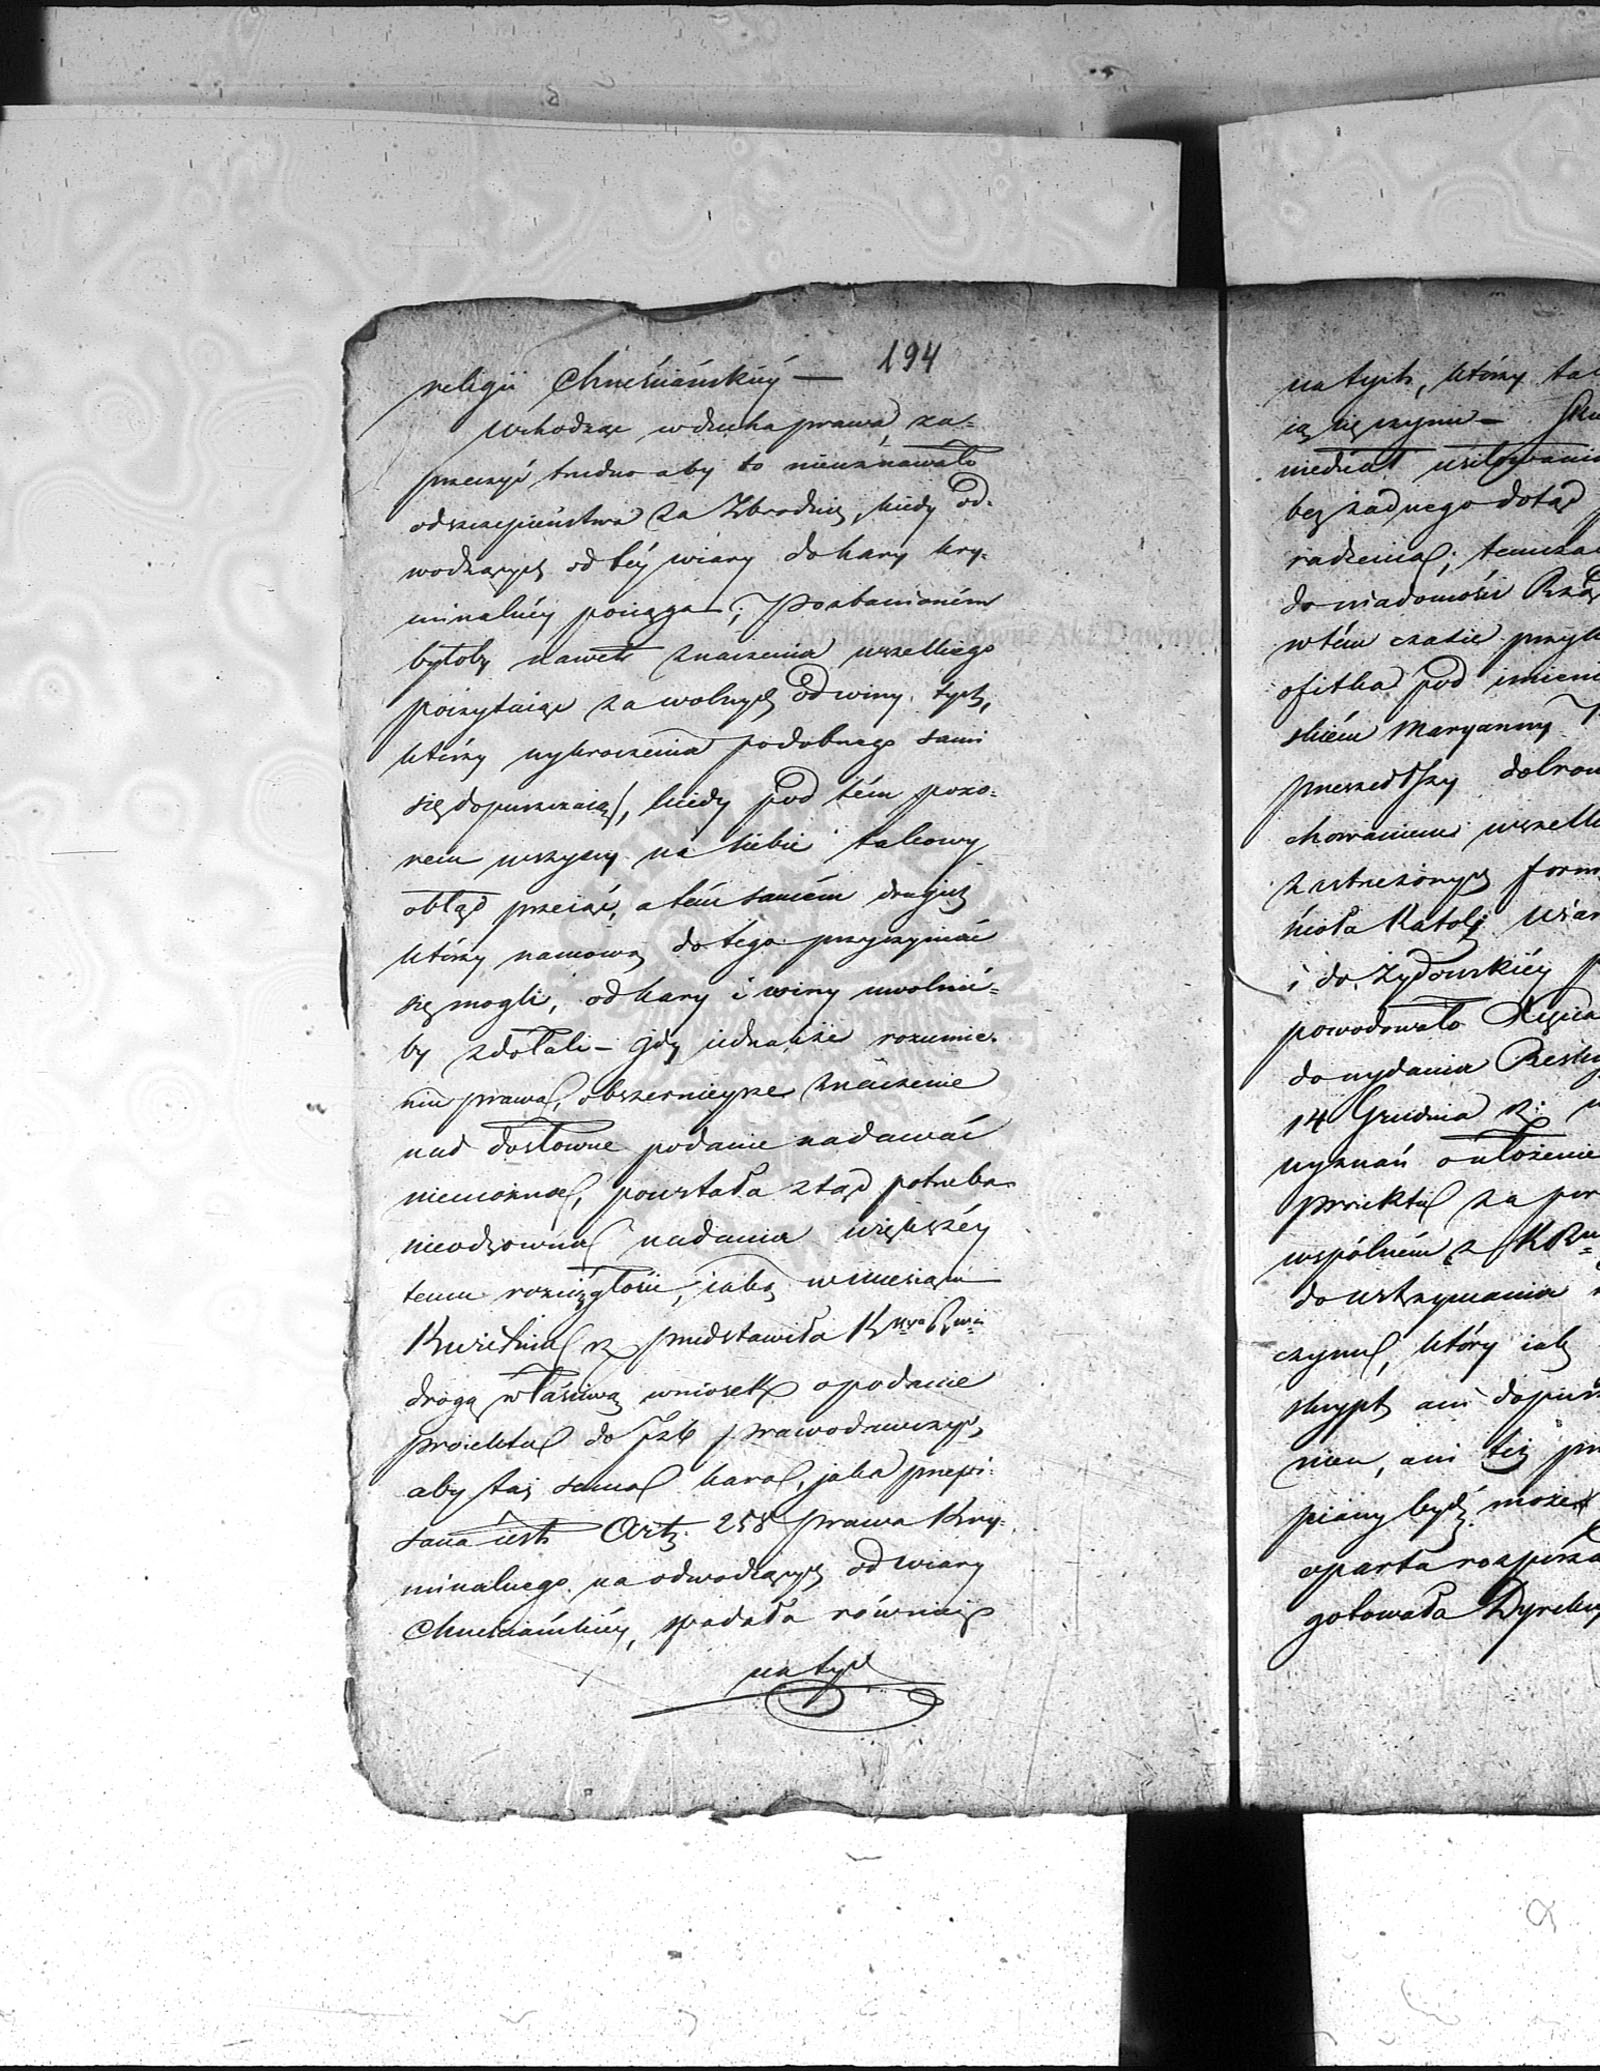 194
religii Chrześciańskiéy —
Wchodząc w ducha prawa za-
przeczyć trudno aby to nieuznawało
odszczepieństwa za Zbrodnię, kiedy od-
wodzących od téy wiary do kary kry-
minalnéy pociąga; Pozbawioném
byłoby nawet znaczenia wszelkiego
poczytaiąc za wolnych od winy tych,
którzy wykroczenia podobnego sami
się dopuszczaią, kiedy pod tém pozo-
rem wszyscy na siebie takowy
obłąd przeiąć, a tém samém drugich
którzy namową do tego przyczyniać
się mogli, od kary i winy uwolnić-
by zdołali — gdy iednakże rozumie-
niu prawa, obszernieysze znaczenie
nad dosłowne podanie nadawać
niemożna, powstała ztąd potrzeba
nieodzowna nadania większéy
temu rozciągłości, iakoż w miesiącu
Kwietniu r. z. przedstawiła
drogą właściwą wniosek o podanie
proiektu do Izb prawodawczych,
aby taż sama kara, jaka przepi-
sana iest Art. 258 prawa Kry-
minalnego na odwodzących od wiary
Chrześciańskiéy, spadała również
na tych
na tych, którzy
ią się czynu —
niedział usiłowania
bez żadnego dotąd
radzenia; temczas
do wiadomości
w tém czasie
ofitka pod imieni
skiém Maryanny
przeszedłszy dobrow
chowaniem wszelk
zastrzeżonych form
ścioła Katol: Wiar
i do Żydowskiéy
powodowało Xięcia
do wydania Resk
14 Grudnia r:
wyznań o ułożenie
proiektu za por
wspólném z
do wstrzymania
czynu, który iak
skrypt ani dopus
nien, ani też
piany bydź może
oparta rozporzą
gotowała Dyrek
Archiwum Główne Akt Dawnych